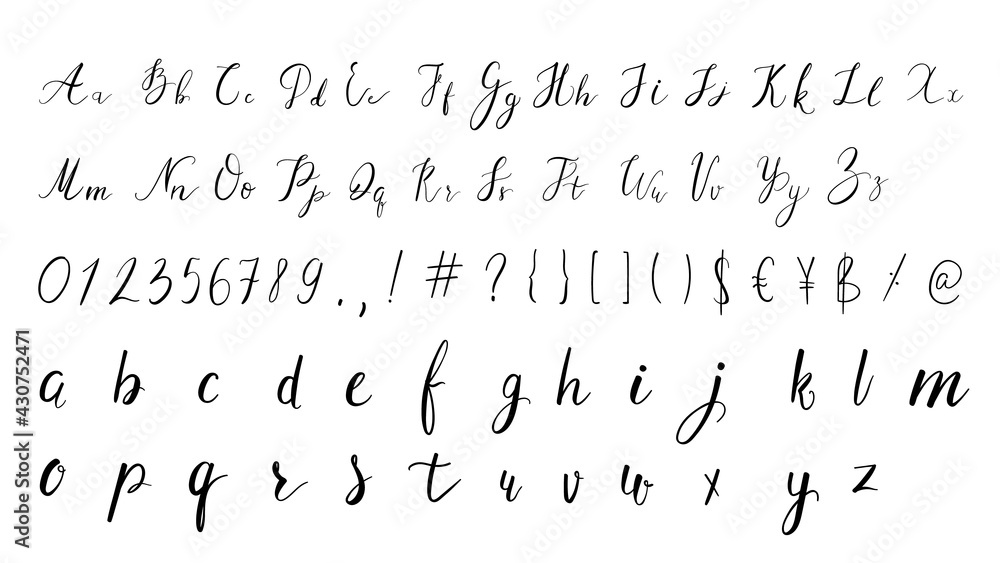 Aa Bb Cc Dd Ee Ff Gg Hh Ii Jj Kk Ll Xx
Mm Nn Oo Pp Qq Rr Ss Tt Ww Vv Yy Zz
0 1 2 3 5 6 7 8 9 . , ! # ? { } [ ] ( ) $ € ¥ ฿ % @
a b c d e f g h i j k l m
o p q r s t u v w x y z
Adobe Stock | #430752471